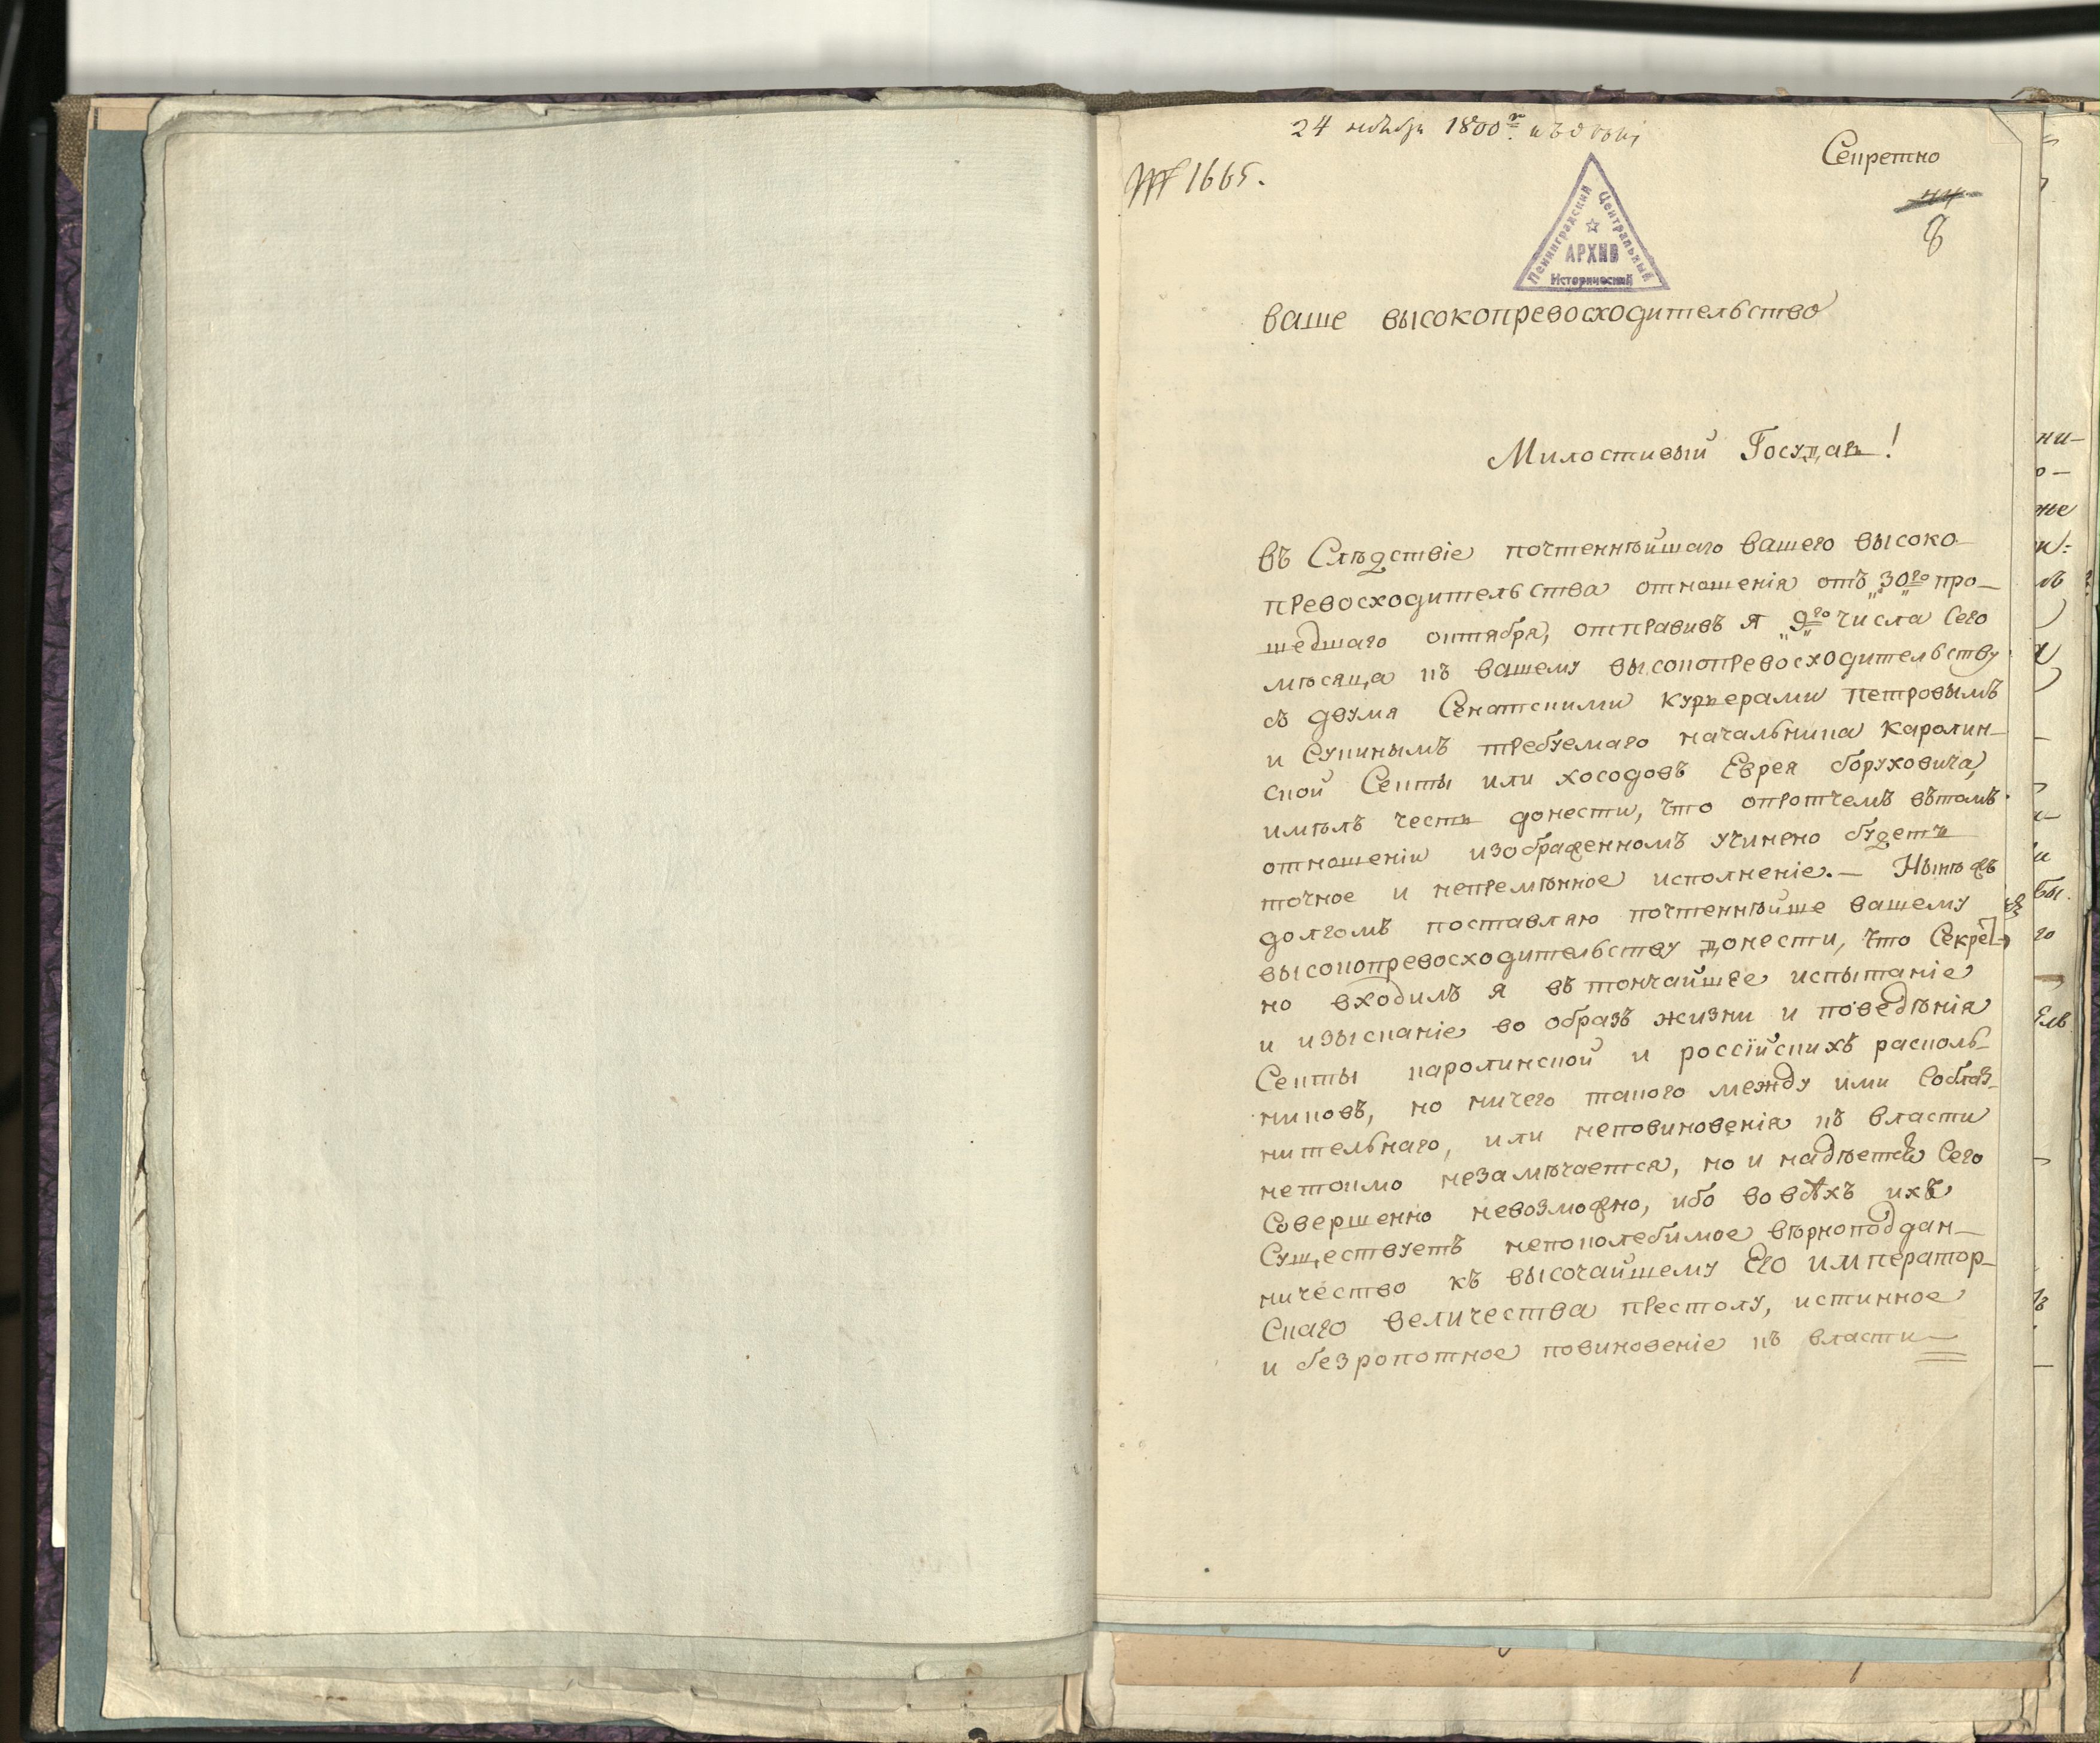 24 ноября 1800го
№ 1665.
Секретно
44
8
Ленинградский Центральный
АРХИВ
Исторический
ваше высокопревосходительство
Милостивый Государь!
въ Слѣдствіе почтеннѣйшаго вашего высоко-
превосходительства отношенія отъ „30го„ про-
шедшаго октября, отправивъ я „9го„ числа Сего
мѣсяца къ вашему высокопревосходительству
съ двумя Сенатскими курьерами петровымъ
и Сукинымъ требуемаго начальника каролин-
ской Секты или хосодовъ Еврея боруховича,
имѣлъ честь донести, что опротчемъ въ томъ
отношеніи изображенномъ учинено будетъ
точное и непремѣнное исполненіе. — Нынѣ жъ
долгомъ поставляю почтеннѣйше вашему
высокопревосходительству донести, что Секрет-
но входилъ я въ тончайшее испытаніе
и изысканіе во образъ жизни и поведѣнія
Секты каролинской и россійскихъ расколь-
никовъ, но ничего такого между ими Соблаз-
нительнаго, или неповиновенія къ власти
нетокмо незамѣчается, но и надѣется Сего
Совершенно невозможно, ибо во всѣхъ ихъ
Существуетъ непоколебимое вѣрноподдан-
ничество къ высочайшему Его император-
Скаго величества престолу, истинное
и безропотное повиновеніе къ власти